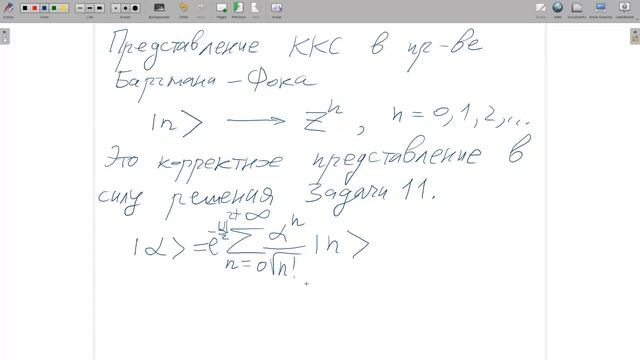 Представление ККС в пр-ве
Баргмана – Фока
|n> → Zⁿ, n = 0, 1, 2, ...
Это корректное представление в
силу решения Задачи 11.
|α> = e^{-|α|²/2} Σ_{n=0}^{+∞} αⁿ/√n! |n>